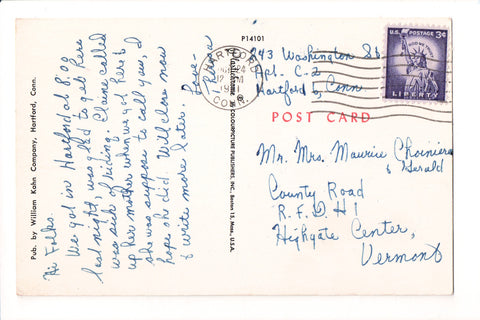 P14101
Pub. by William Kahn Company, Hartford, Conn.
Hi Folks.
We got in Hartford at 8:00
last night, was glad to get here
was sick of riding. Elaine called
up her mother when we got here &
she was suppose to call you, I
hope she did. Will close now
& write more later. Love-
COLOURPICTURE PUBLISHERS, INC., Boston 15, Mass., U.S.A.
HARTFORD
CONN.
U.S. POSTAGE 3¢
IN GOD WE TRUST
LIBERTY
243 Washington St.
Apt. C-2
Hartford 6, Conn.
POST CARD
Mr. Mrs. Maurice Choiniere
& Gerald
County Road
R.F.D #1
Highgate Center,
Vermont